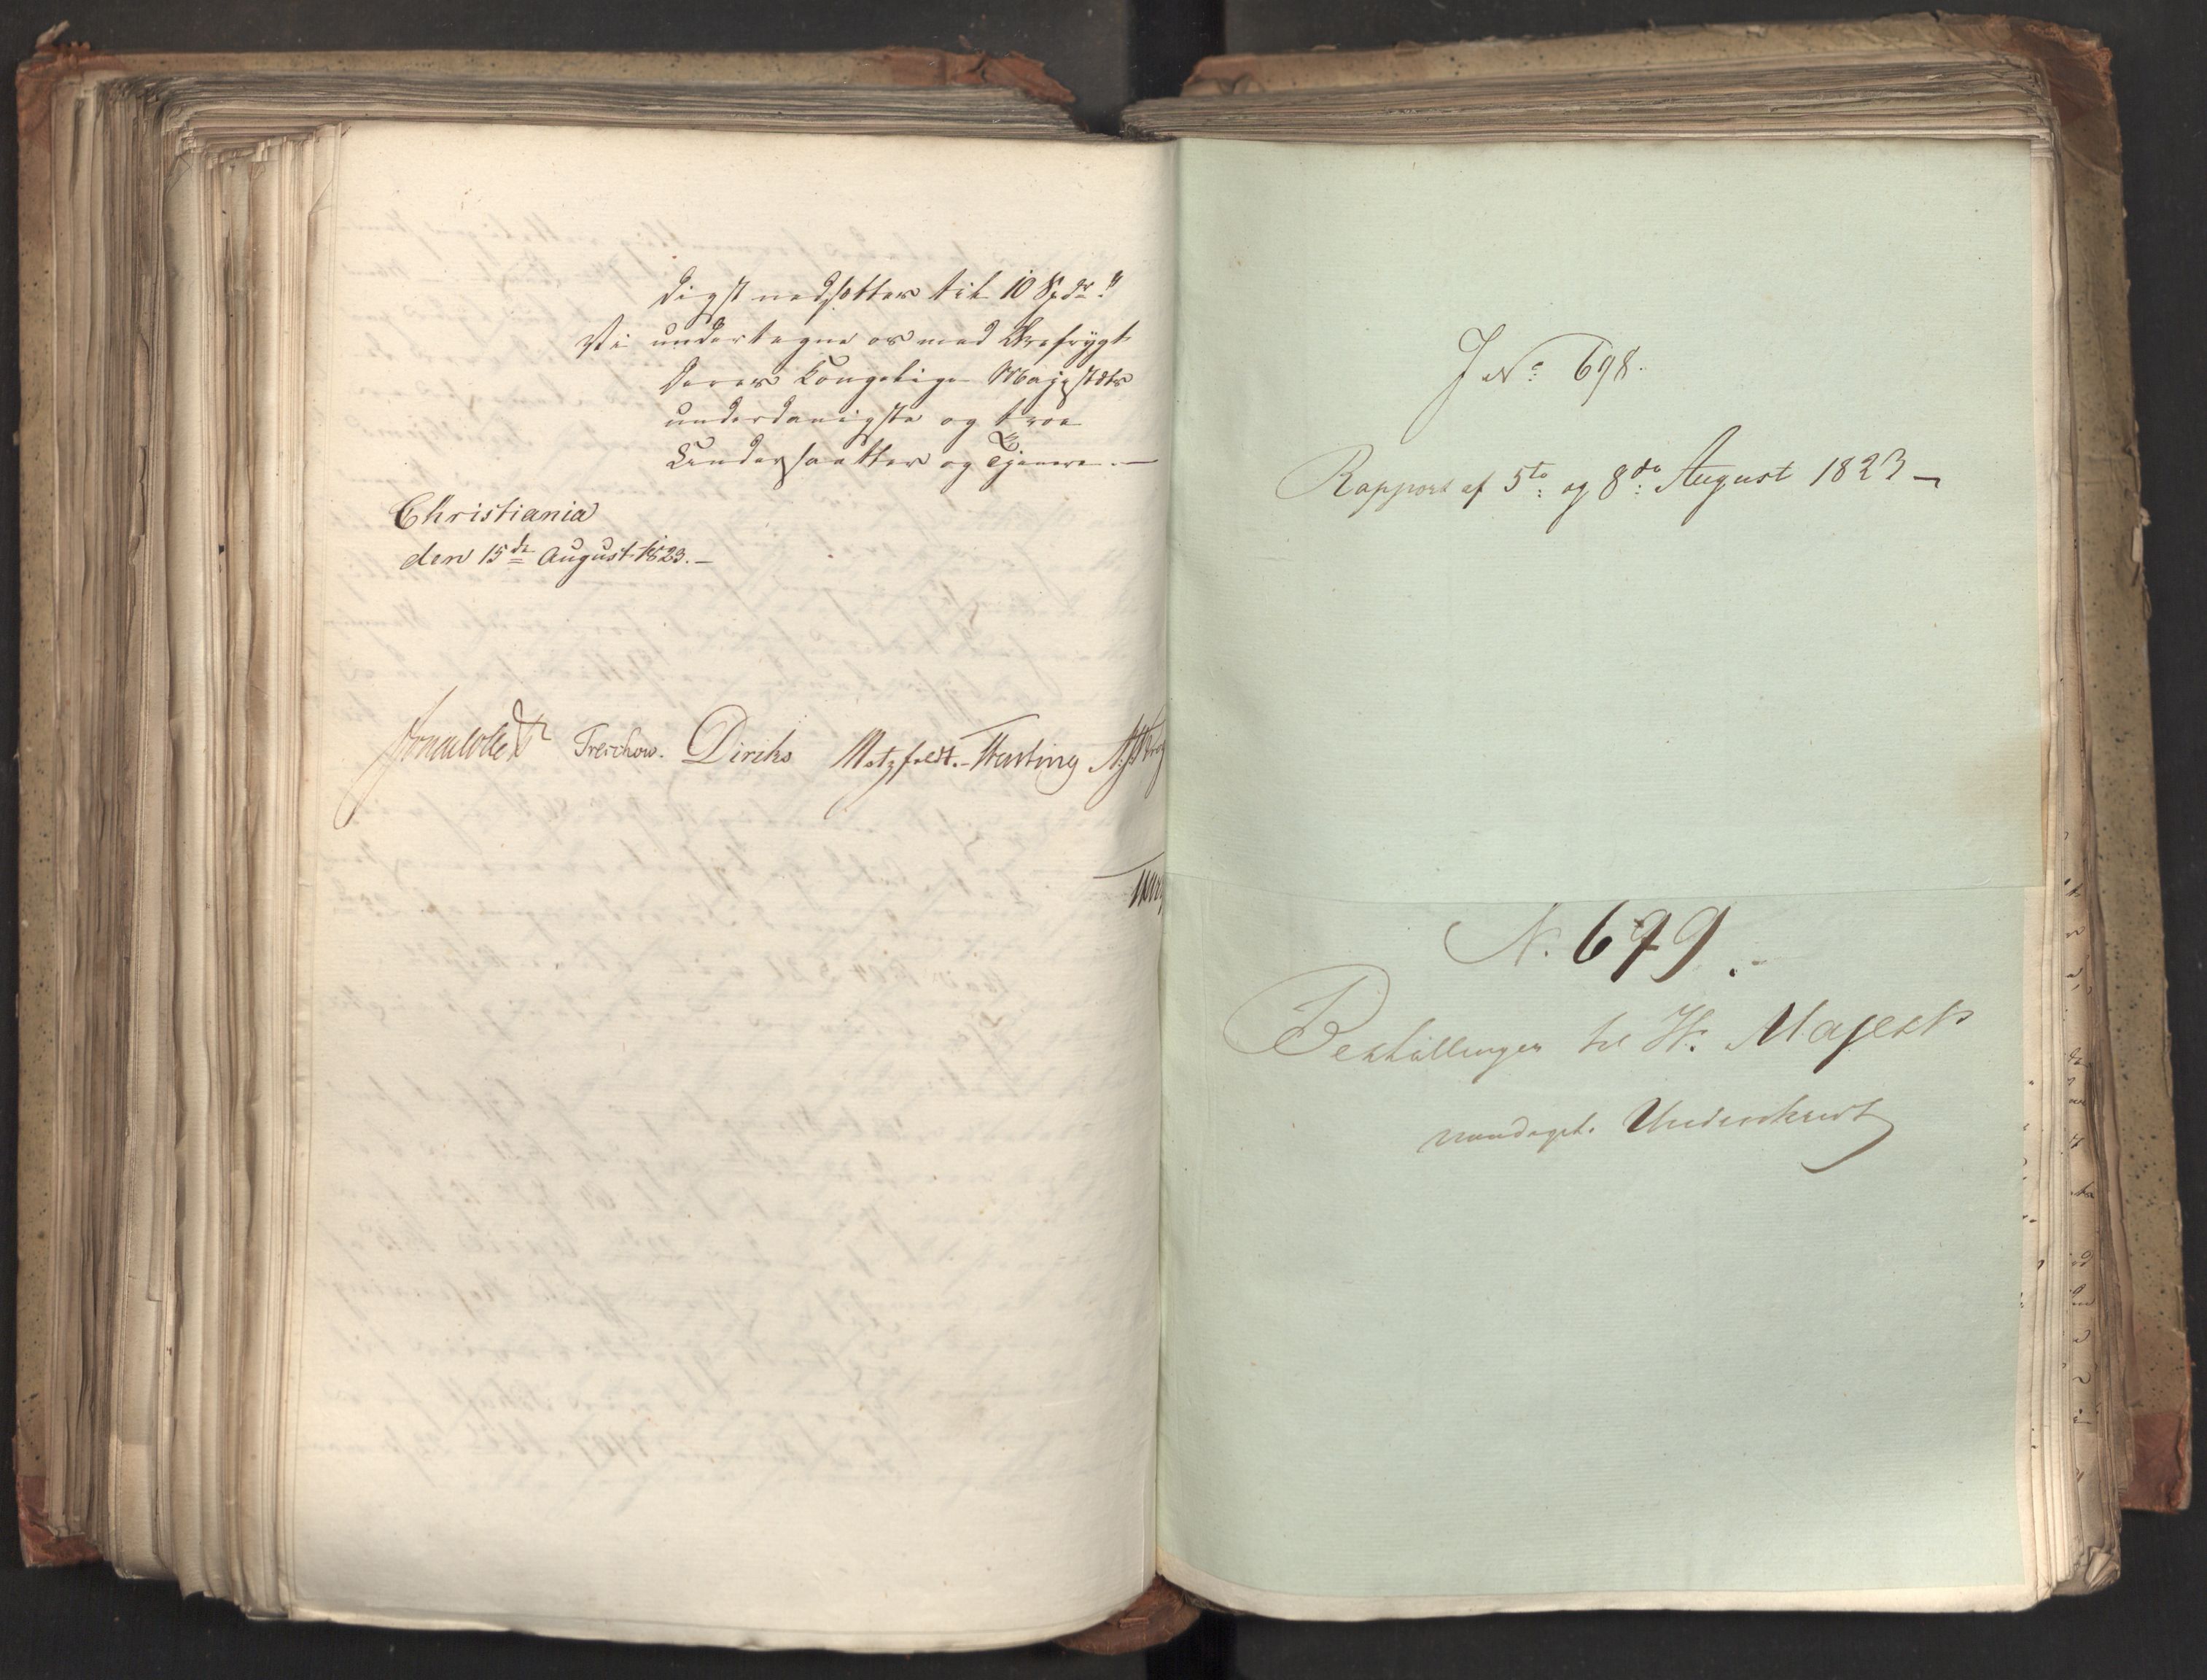 digst nedsættes til 10 Spdr."
Vi undertegne os med Ærefrygt
Deres Kongelige Majestæts
underdanigste og troe
Undersaatter og Tjenere. —
Christiania
den 15de August 1823. —
Treschow. Diriks Motzfeldt.
J No 698.
Rapport af 5te og 8de August 1823 —
N. 699.-
Bestallinger til H. Majests
naadigst. Underskrivt